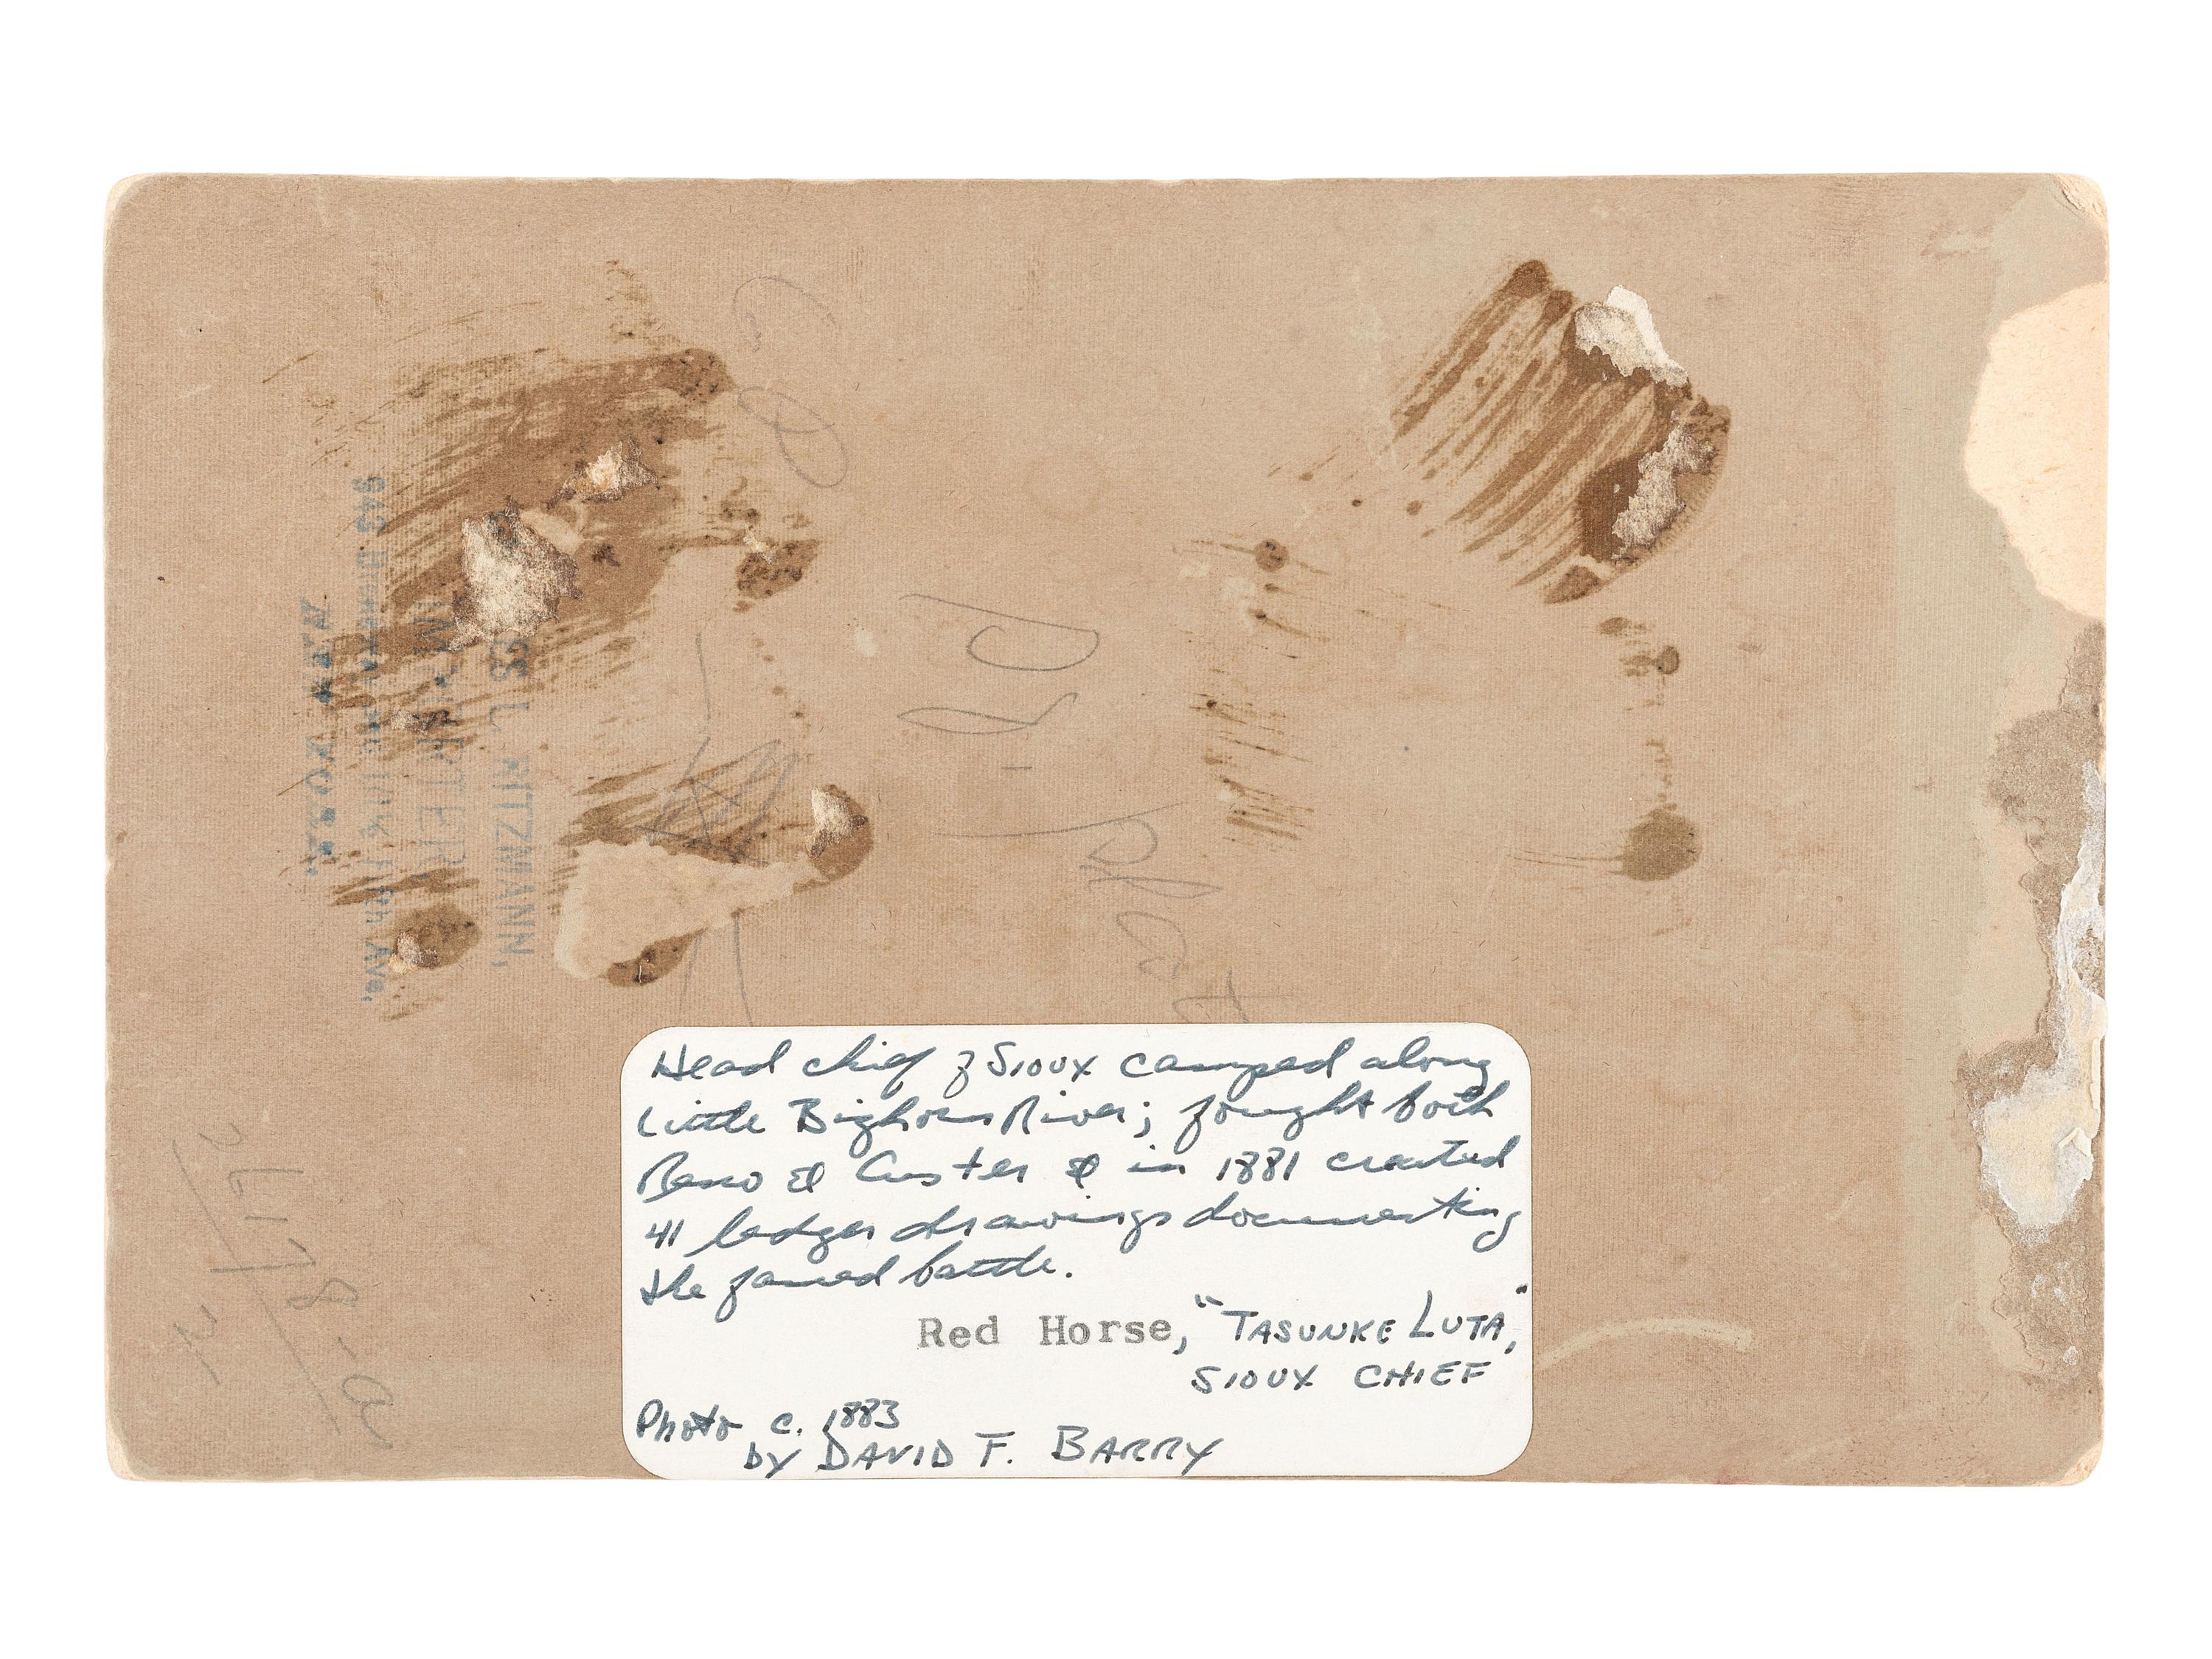 Head chief of Sioux camped along
Little Bighorn River; fought both
Reno & Custer & in 1881 created
41 ledger drawings documenting
the famed battle.
Red Horse, "TASUNKE LUTA,"
SIOUX CHIEF
Photo c. 1883
by DAVID F. BARRY
L. RITZMANN,
IMPORTER,
943 Broadway, Ave,
NEW YORK